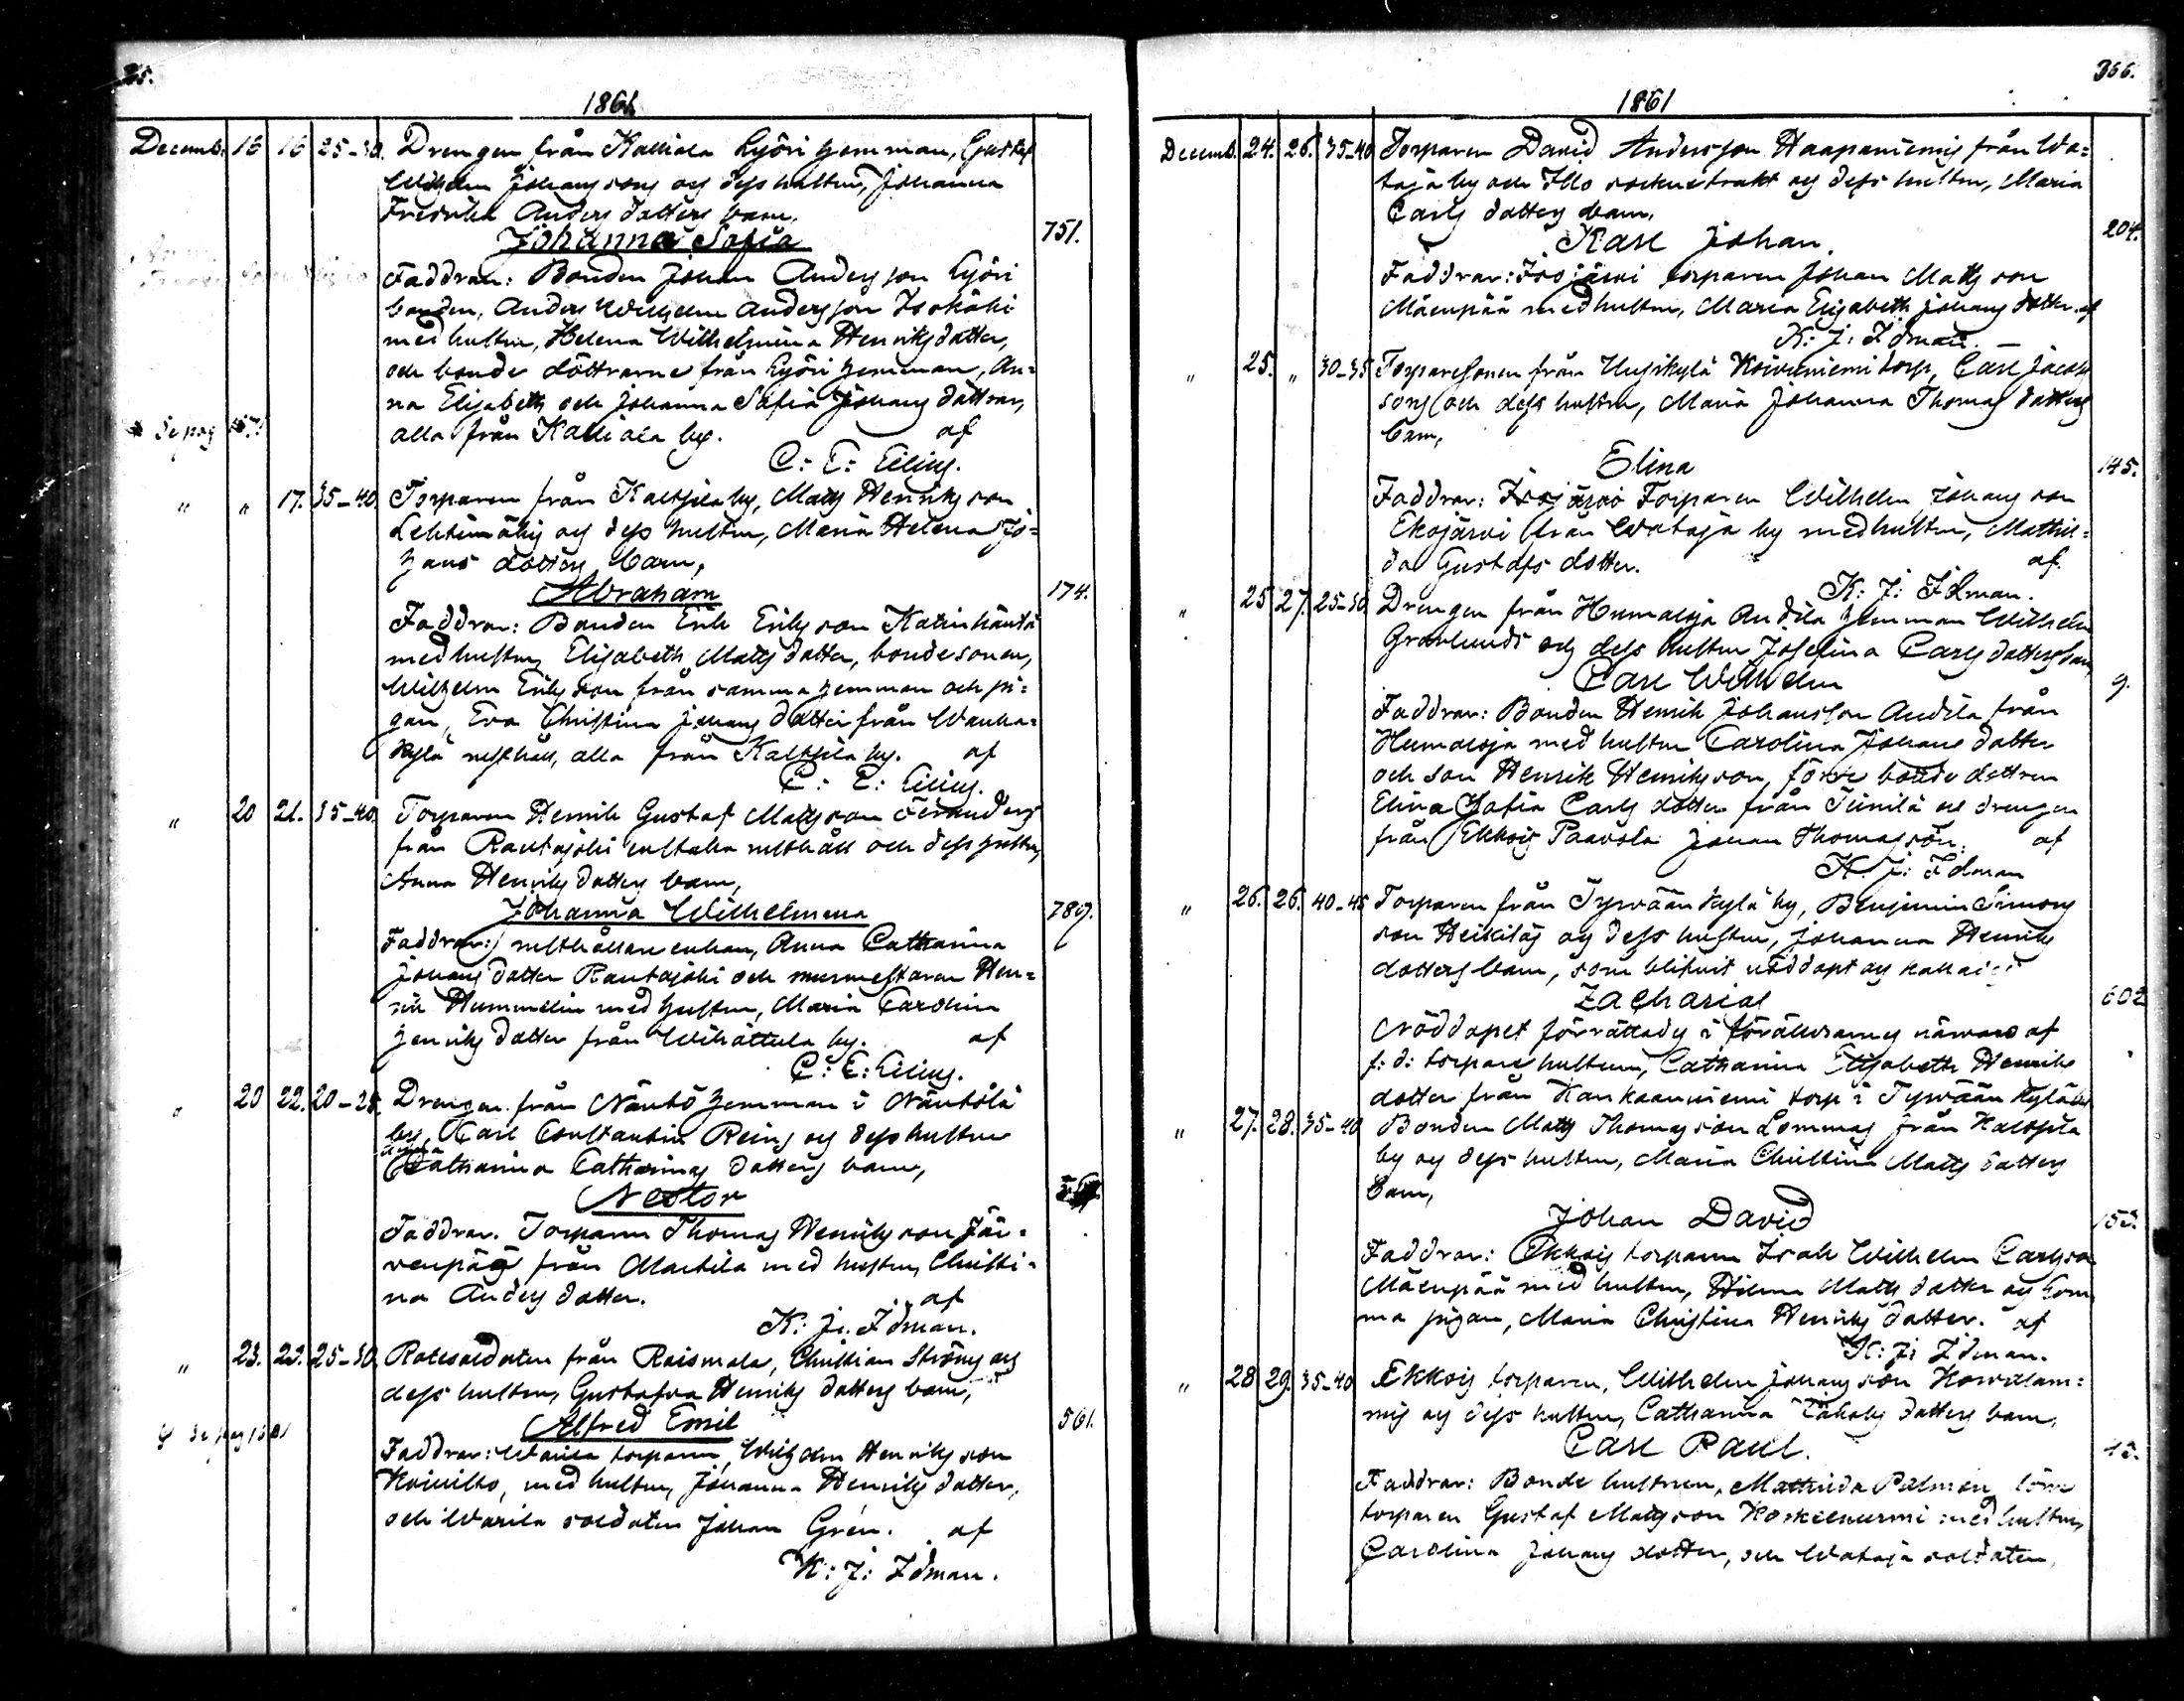 1861
Decemb. 16 16 25-30. Drengen från Kalliala Kyöri hemman, Gustaf
Wilhelm Johansons og dess hustru, Johanna
Fredrika Anders dotters barn,
Johanna Sofia 751.
Faddrar: Bonden Johan Andersson Kyöri
bonden, Anders Wilhelm Andersson Isokäki
med hustru, Helena Wilhelmina Henriksdotter,
och bonde döttrarne från Kyöri hemman, An=
na Elisabeth och Johanna Sofia Johans döttrar,
alla från Kalliala by. af
C: E: Eilius.
" " 17. 35-40. Torparen från Kaltsila by, Matts Henriks son
Lehtimäkis og dess hustru, Maria Helena Jo=
hans dotters barn,
Abraham 174.
Faddrar: Bonden Erik Eriks son Katinhäntä
med hustru, Elisabeth Matts dotter, bondesonen,
Wilhelm Eriks son från samma hemman och pi=
gan, Eva Christina Johans dotter från Wanha=
kylä rusthåll, alla från Kaltsila by. af
C: E: Eilius.
" 20 21. 35-40. Torparen Henrik Gustaf Mattsson
från Rautajoki rusthåll och dess hustru,
Anna Henriks dotters barn,
Johanna Wilhelmina 789.
Faddrar: rusthållare enkan, Anna Catharina
Johans dotter Rautajoki och murmestaren Hen=
rik Hummelin med hustru, Maria Carolina
Henriks dotter från Wihattula by. af
C: E: Eilius.
" 20 22. 20-25. Drengen från Näntö hemman i Näntölä
by, Carl Constantin Reins og dess hustru
Anna
Catharina Catharinas dotters barn,
Nestor
Faddrar. Torparen Thomas Henriks son Jär=
venpää från Marttila med hustru, Christi=
na Anders dotter. af
K: J: Idman.
" 23. 23. 25-30. Rotesoldaten från Raismala, Christian Ströms og
dess hustru, Gustafva Henriks dotters barn,
Alfred Emil 561.
Faddrar: Warila torparen, Wilhelm Henriks son
Koivisto, med hustru, Johanna Henriks dotter,
och Warila soldaten Johan Grén. af
K: J: Idman.
366.
1861
Decemb. 24. 26. 35-40 Torparen David Andersson Haapaniemis från Wa=
taja by och Illo sockne trakt og dess hustru, Maria
Carls dotters barn,
Karl Johan. 204.
Faddrar: Isojärvi torparen Johan Matts son
Mäenpää med hustru, Maria Elisabeth Johans dotter. af
K: J: Idman.
" 25. " 30-35 Torparesonen från Uusikylä Koivuniemi torp, Carl Jacobs
sons och dess hustru, Maria Johanna Thomas dotters
barn,
Elina 145.
Faddrar: Isojärvi Torparen Wilhelm Johans son
Ekojärvi från Wataja by med hustru, Mathil=
da Gustafs dotter. af
K: J: Idman.
" 25 27. 25-30 Drengen från Humaloja Anttila hemman Wilhelm
Grönlunds og dess hustru Josefina Carls dotters barn,
Carl Wilhelm 9.
Faddrar: Bonden Henrik Johansson Anttila från
Humaloja med hustru Carolina Johans dotter
och son Henrik Henriksson, förre bonde dottren
Elina Sofia Carls dotter från Tiinilä och drengen
från Ekkois Paavola Johan Thomas son. af
K. J: Idman
" 26. 26. 40-45 Torparen från Tyrvään kylä by, Benjamin Simons
son Heikiläs og dess hustru, Johanna Henriks
dotters barn, som blifvit nöddöpt og kallai
Zacharias 602
Nöddopet förrättades i föräldrarnes närvaro af
f: d: torpare hustrun, Catharina Elisabeth Henriks
dotter från Kankaanniemi torp i Tyrvään kylä by
" 27. 28. 35-40 Bonden Matts Thomas son Lommas från Kaltsila
by og dess hustru, Maria Christina Matts dotters
barn,
Johan David
Faddrar: Ekkois torparen Isak Wilhelm Carlsson
Mäenpää med hustru, Helena Matts dotter og
pigan, Maria Christina Henriks dotter. af
K: J: Idman.
" 28 29. 35-40 Ekkois torparen, Wilhelm Johans son
og dess hustru, Catharina Jakobs dotters barn,
Carl Paul.
Faddrar: Bonde hustrun, Mathilda Palmén
torparen Gustaf Mattsson Koskenurmi med hustru,
Carolina Johans dotter, och Wataja soldaten,